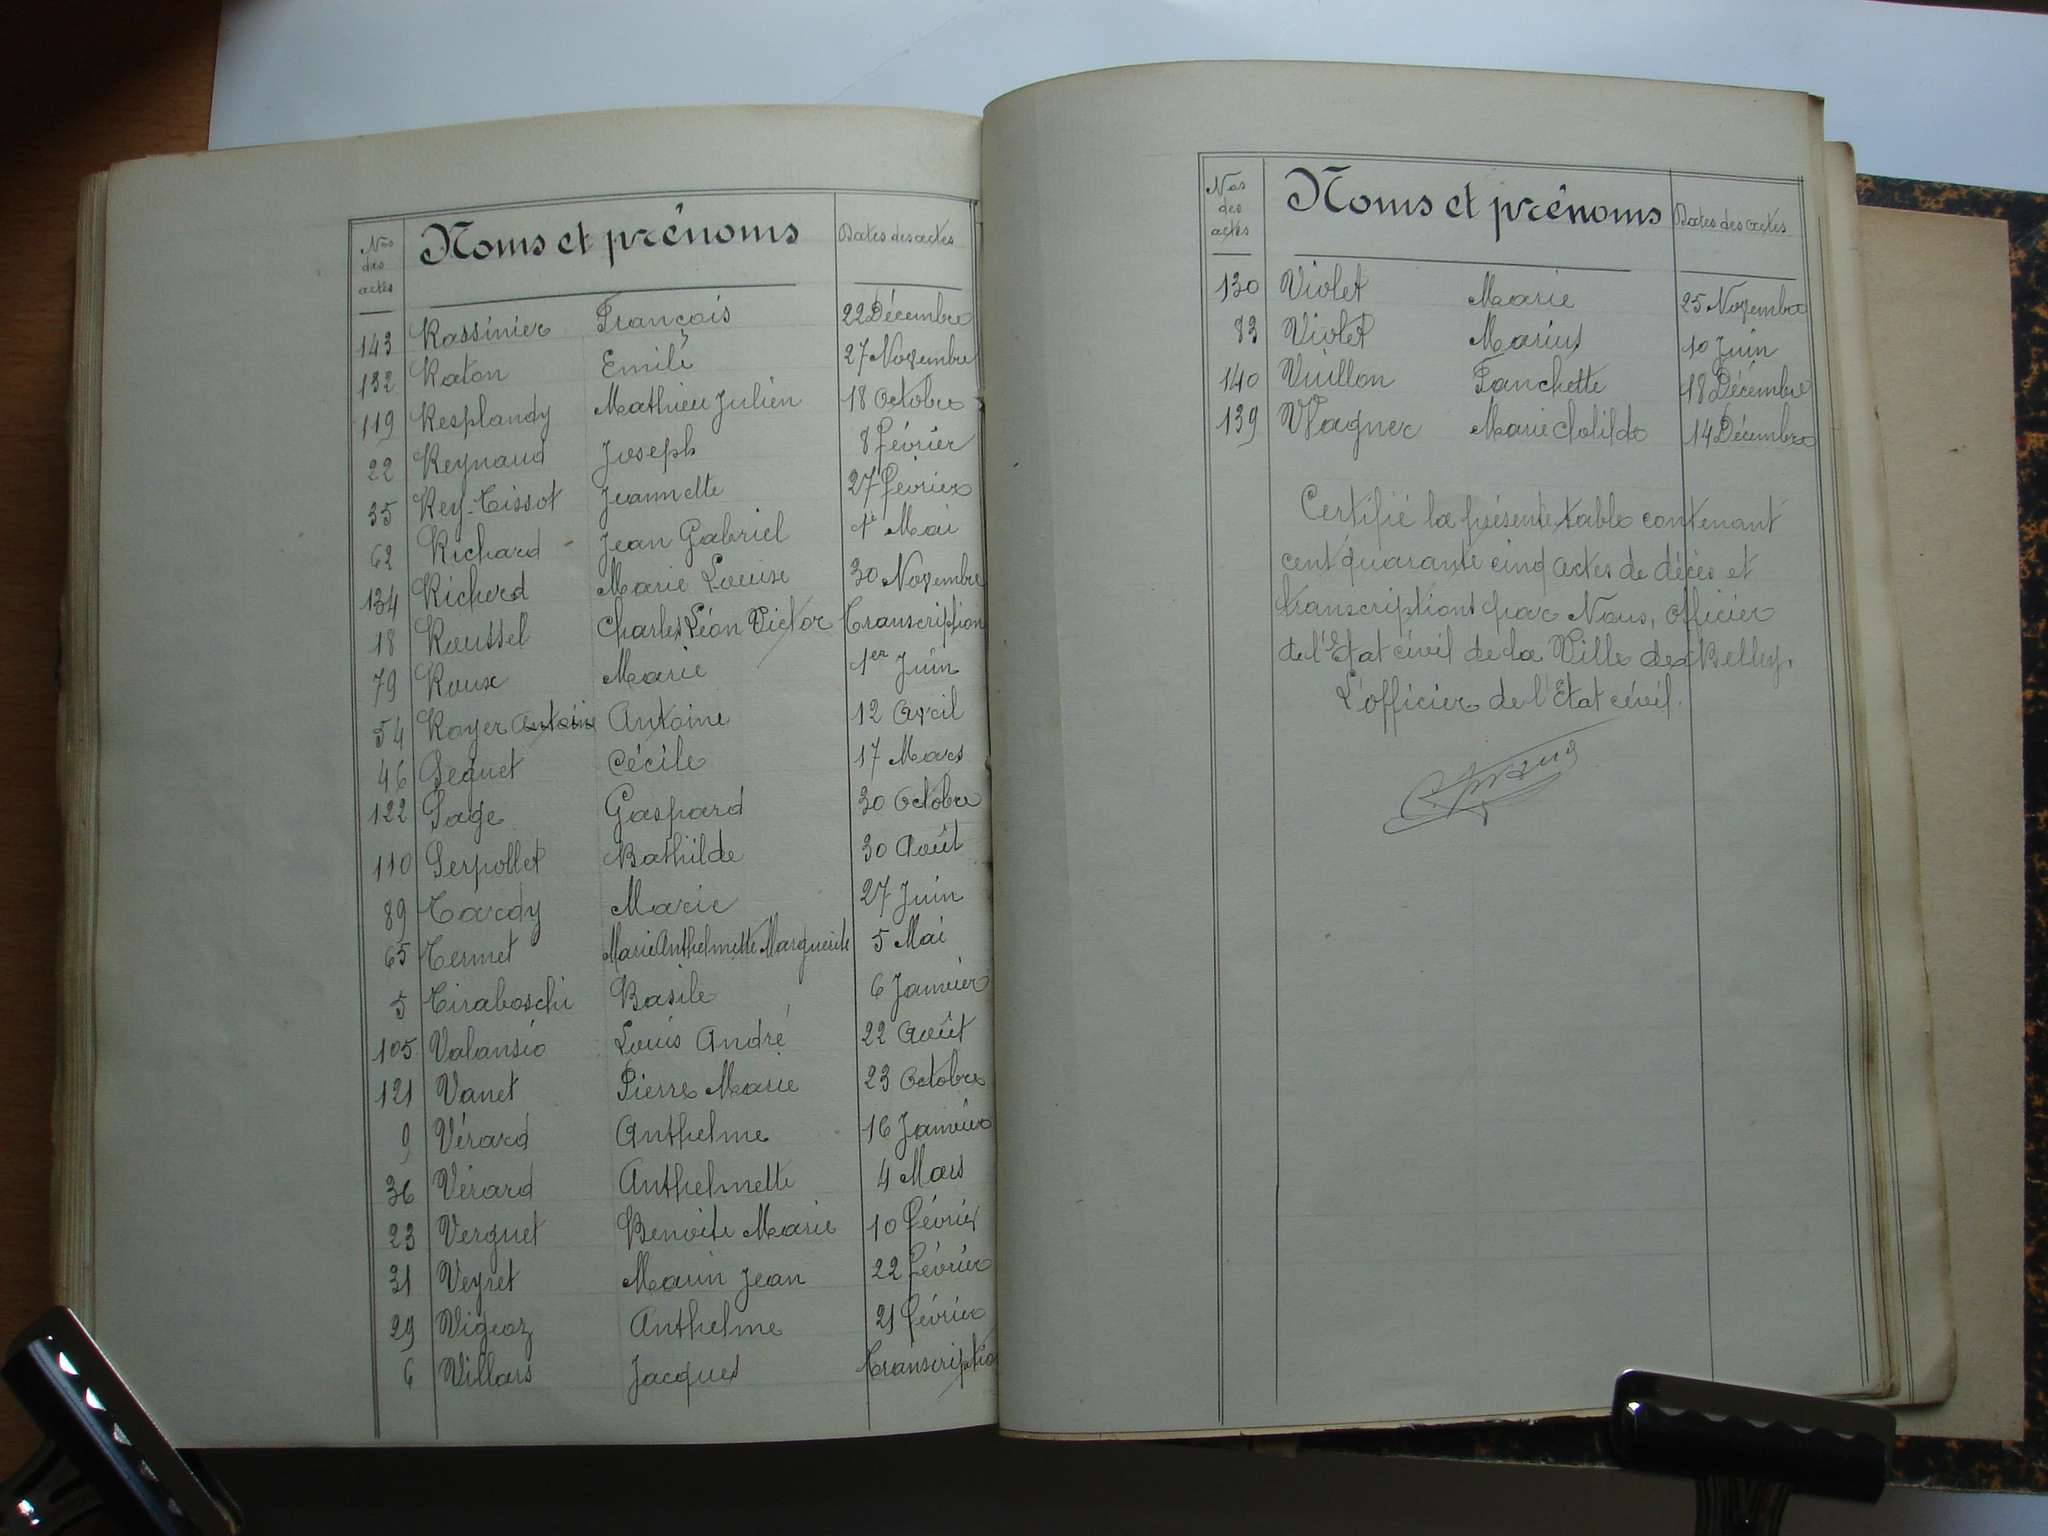 Nos des actes Noms et prénoms Dates des actes
143 Rassinier François 22 Décembre
132 Raton Emile 27 Novembre
119 Resplandy Mathieu Julien 18 Octobre
22 Reynaud Joseph 8 février
35 Rey-Tissot Jeannette 27 février
62 Richard Jean Gabriel 1e Mai
134 Richerd Marie Louise 30 Novembre
18 Roussel Charles Léon Victor Transcription
79 Roux Marie 1er Juin
54 Royer Antoine Antoine 12 Avril
46 Seguet Cécile 17 Mars
122 Sage Gaspard 30 Octobre
110 Serpollet Bathilde 30 Août
89 Tardy Marie 27 Juin
65 Termet Marie Anthelmette Marguerite 5 Mai
5 Tiraboschi Basile 6 Janvier
105 Valansio Louis André 22 Août
121 Vanet Pierre Marie 23 Octobre
9 Vérard Anthelme 16 Janvier
36 Vérard Anthelmette 4 Mars
23 Verguet Benoite Marie 10 février
31 Veyret Marin Jean 22 février
29 Vigeoz Anthelme 21 février
6 Villars Jacques Transcription
Nos des actes Noms et prénoms Dates des actes
130 Violet Marie 25 Novembre
83 Violet Marius 10 Juin
140 Vuillon Fanchette 18 Décembre
139 Wagner Marie Clotilde 14 Décembre
Certifié la présente table contenant
cent quarante cinq actes de décès et
transcriptions par Nous, officier
de l'Etat civil de la Ville de Belley.
L'officier de l'Etat civil.